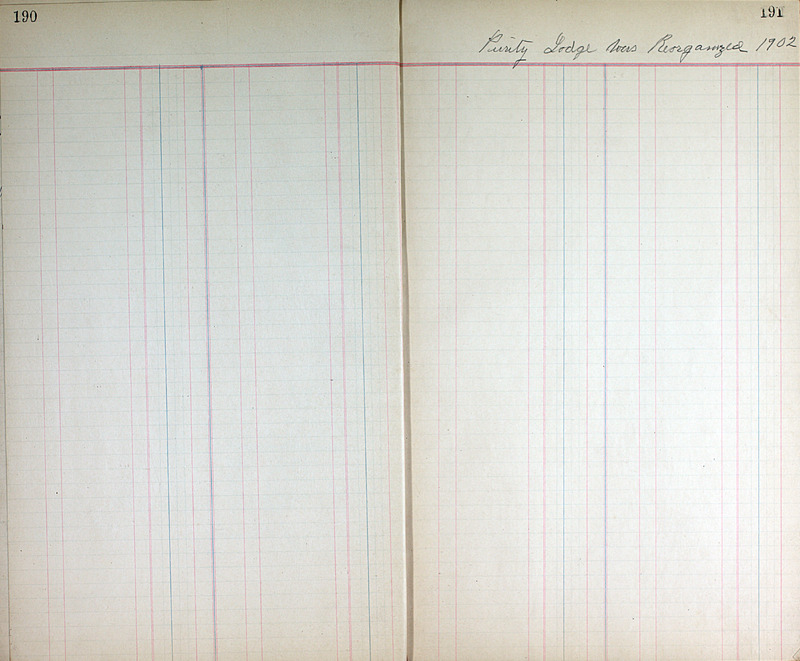 190
191
Purity Lodge was Reorganized 1902